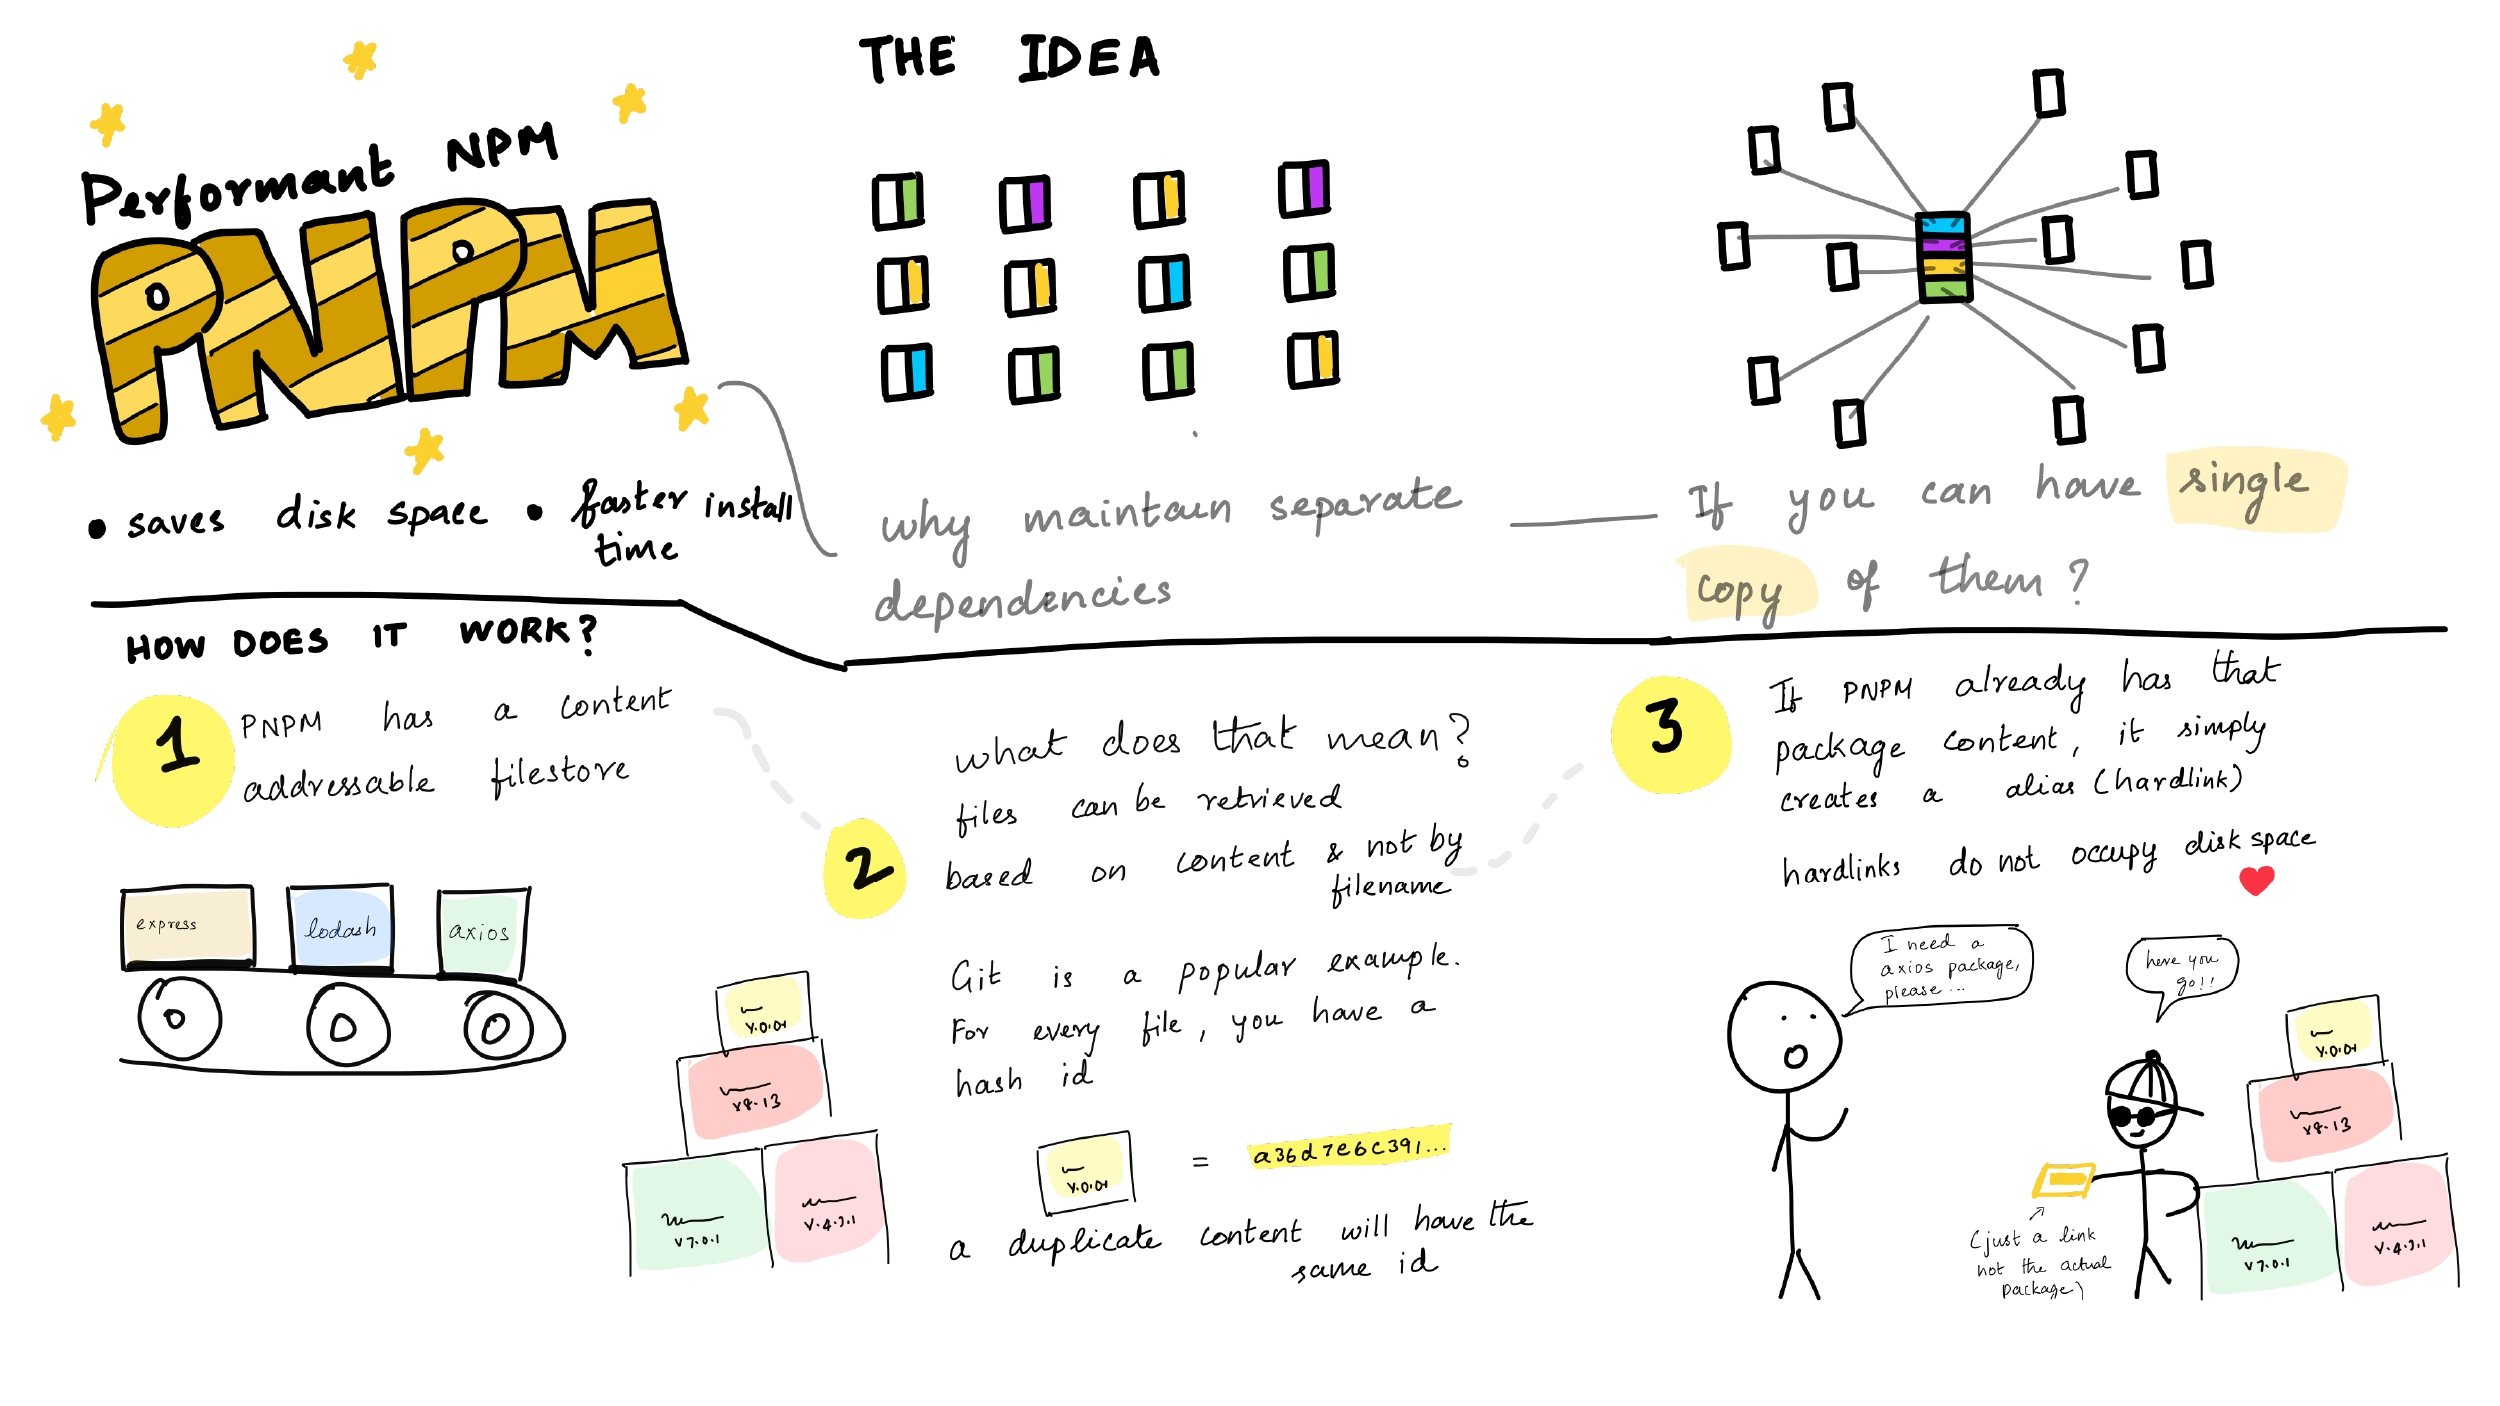 Performant NPM
PNPM
• saves disk space • faster install
time
THE IDEA
why maintain separate
dependencies
If you can have single
copy of them?
HOW DOES IT WORK?
1
PNPM has a content
addressable filestore
express
lodash
axios
v.0.01
v8.13
v7.0.1
v.4.2.1
2
what does that mean?
files can be retrieved
based on content & not by
filename
Git is a popular example.
For every file, you have a
hash id
v.0.01
= a36d7e6c391...
a duplicate content will have the
same id
3
If PNPM already has that
package content, it simply
creates a alias (hardlink)
hardlinks do not occupy disk space
I need a
axios package,
please...
here you
go!!
(just a link
not the actual
package)
v.0.01
v8.13
v7.0.1
v.4.2.1